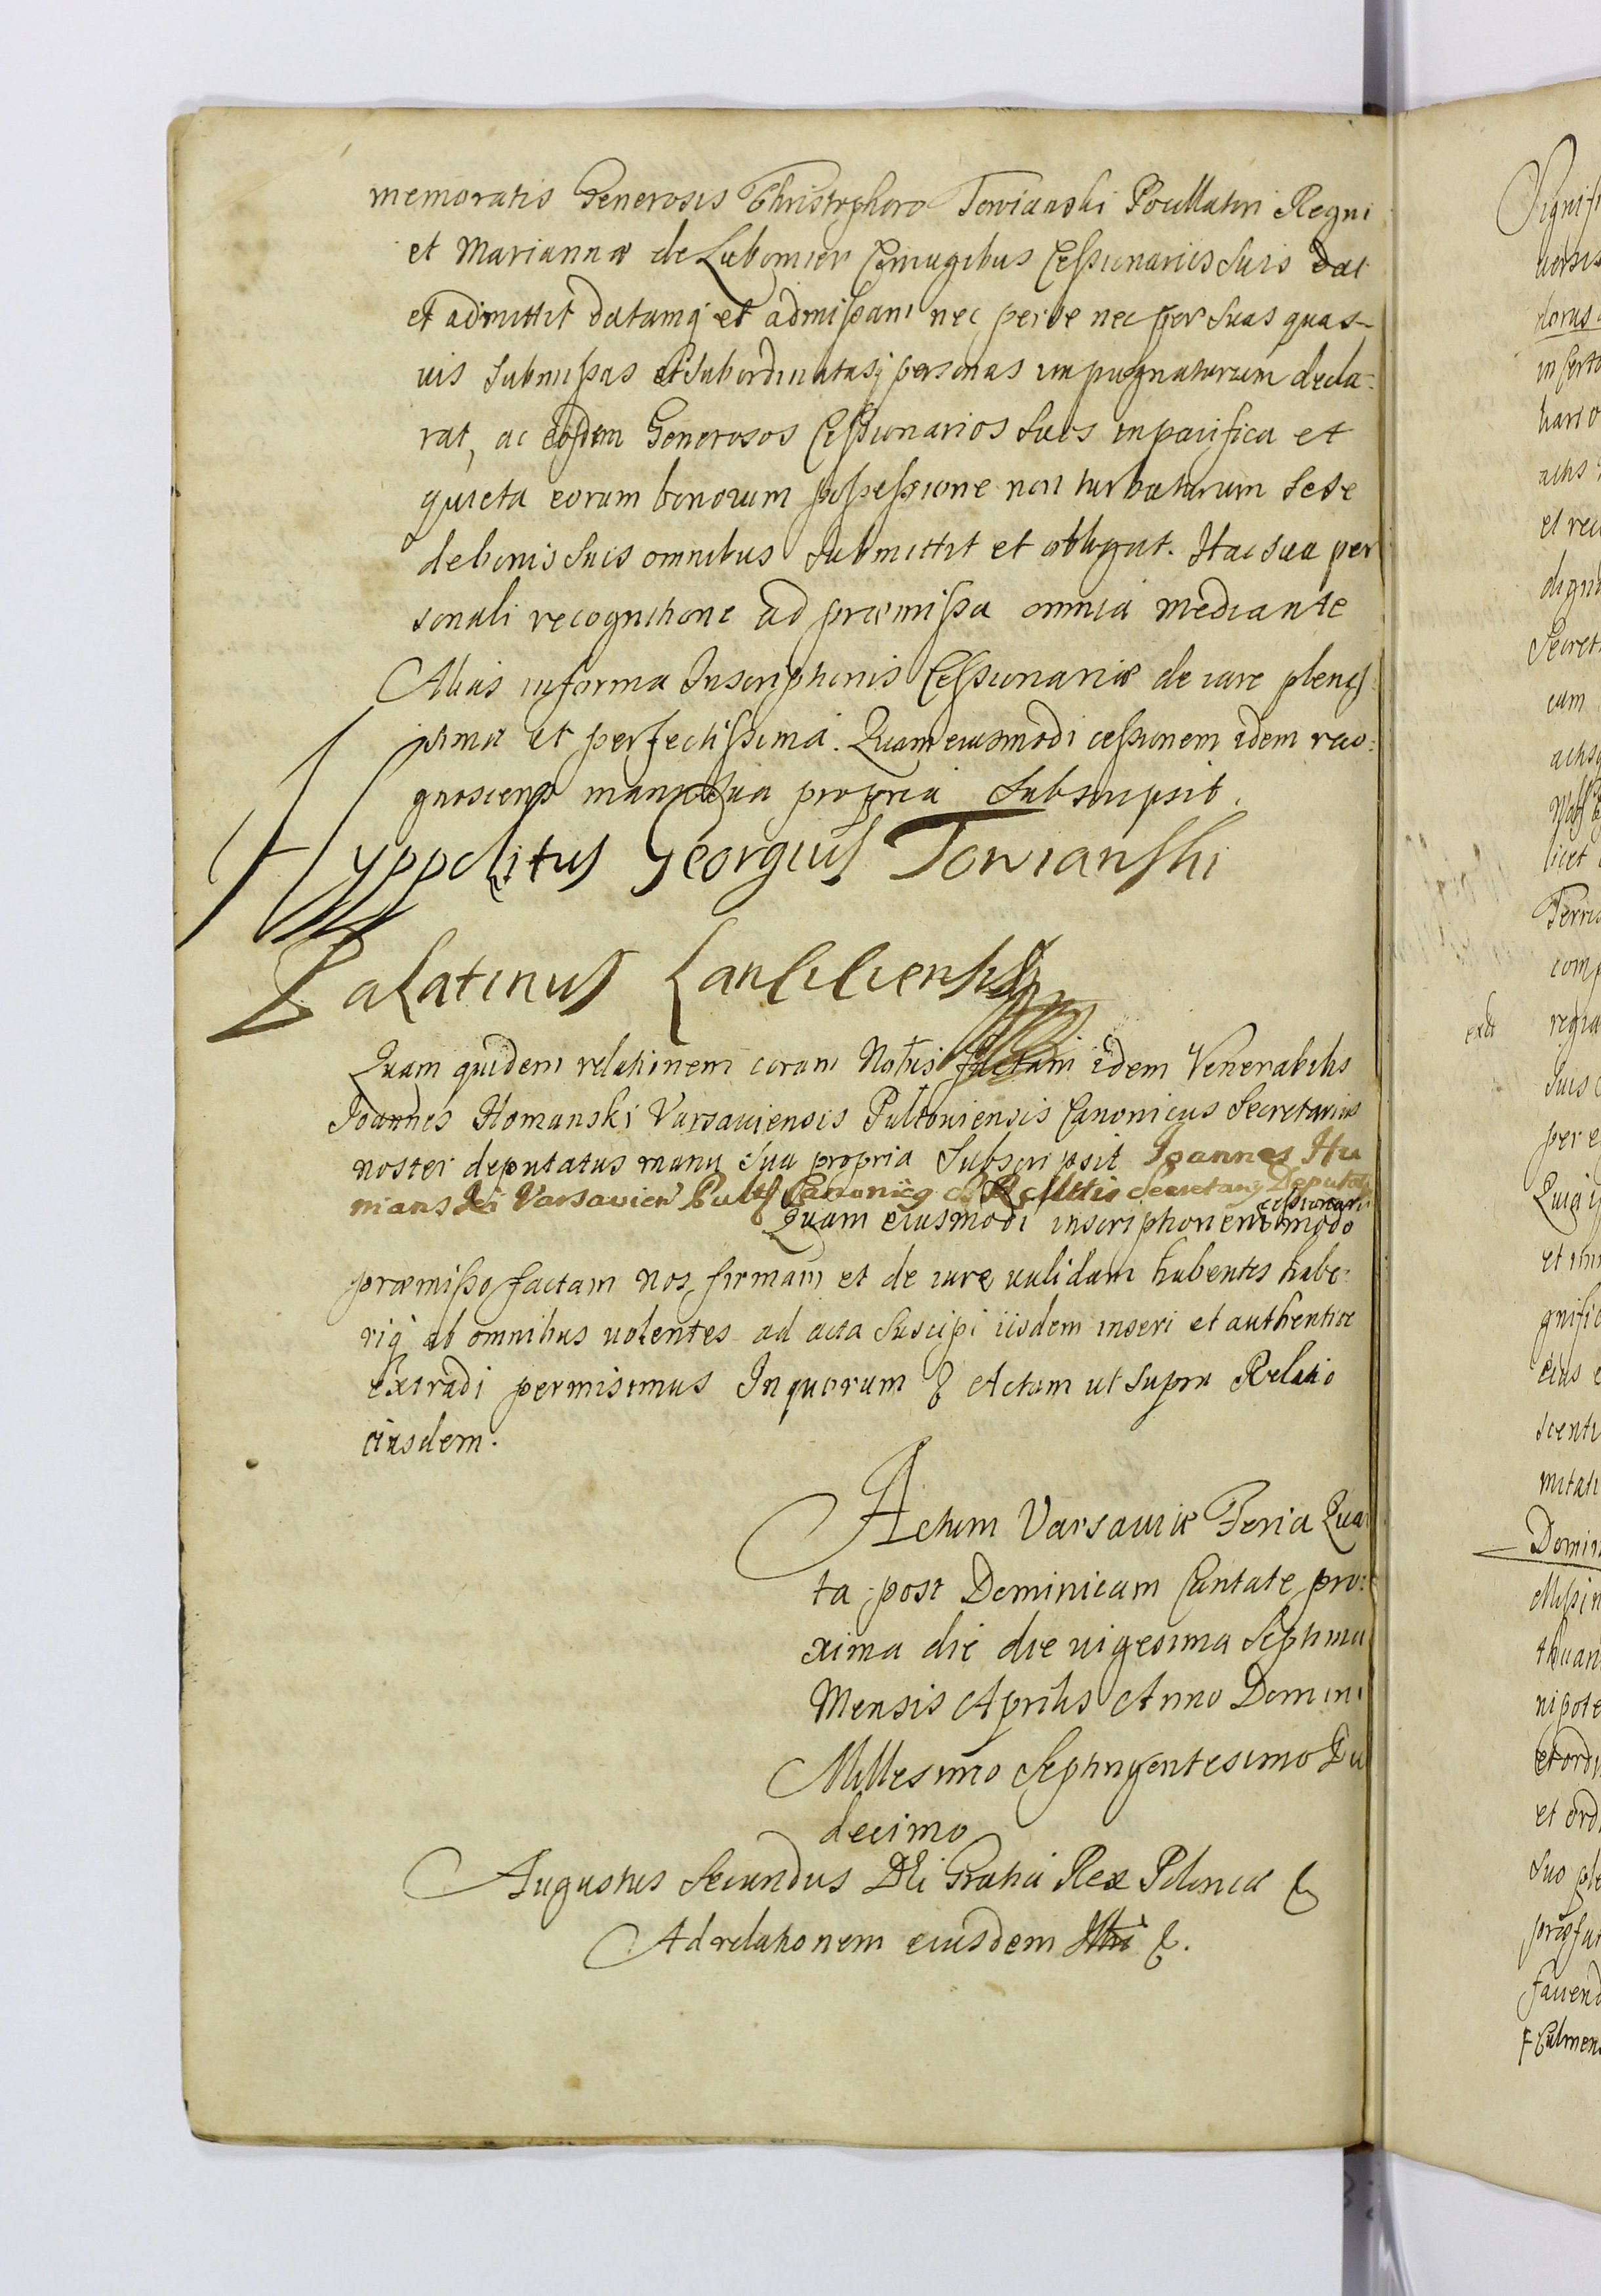 memoratis Generosis Christophoro Towianski Pocillatori Regni
et Mariannæ de Lubomier Coniugibus Cessionariis Suis dat
et admittit datamq et admissam nec per se nec per Suas quas-
vis Submissas et Subordinatasq personas impugnaturum decla-
rat, ac eosdem Generosos Cessionarios Suos in pacifica et
quieta eorum bonorum possessione non turbaturum Sese
de bonis Suis omnibus Submittit et obligat. Hac sua per
sonali recognitione ad præmissa omnia mediante
Alias in forma Inscriptionis Cessionariæ de iure plenis
sima et perfectissima. Quam eiusmodi cessionem idem reco:
gnoscens manu Sua propria Subscripsit.
Hyppolitus Georgius Towianski
Palatinus Lanciciensis
Quam quidem relationem coram Nobis factam idem Venerabilis
Joannes Humanski Varsaviensis Pultoviensis Canonicus Secretarius
noster deputatus manu Sua propria Subscripsit Joannes Hu
manski Varsavien Pult Canonicg S R Mttis Secretarg Deputat
Quam eiusmodi inscriptionem cessionari modo
præmisso factam nos firmam et de iure validam habentes habe-
riq ab omnibus volentes ad acta Suscipi iisdem inseri et authentice
extradi permisimus In quorum & Actum ut Supra Relatio
eiusdem.
Actum Varsaviæ Feria Quar
ta post Dominicam Cantate pro:
xima die die vigesima Septima
Mensis Aprilis Anno Domini
Millesimo Septingentesimo Du
decimo
Augustus Secundus Dei Gratia Rex Poloniæ &
Ad relationem eiusdem &.